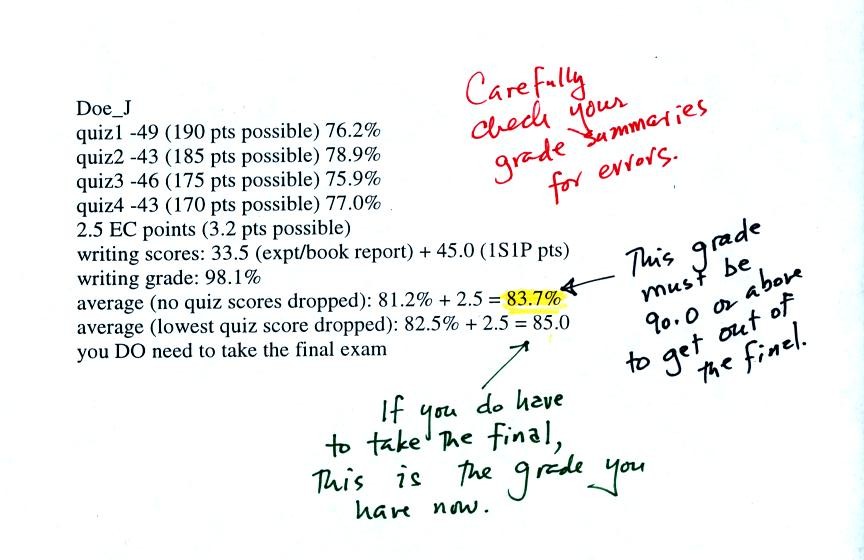 Doe_J
quiz1 -49 (190 pts possible) 76.2%
quiz2 -43 (185 pts possible) 78.9%
quiz3 -46 (175 pts possible) 75.9%
quiz4 -43 (170 pts possible) 77.0%
2.5 EC points (3.2 pts possible)
writing scores: 33.5 (expt/book report) + 45.0 (1S1P pts)
writing grade: 98.1%
average (no quiz scores dropped): 81.2% + 2.5 = 83.7%
average (lowest quiz score dropped): 82.5% + 2.5 = 85.0
you DO need to take the final exam
Carefully
check your
grade summaries
for errors.
This grade
must be
90.0 or above
to get out of
the final.
If you do have
to take the final,
This is the grade you
have now.